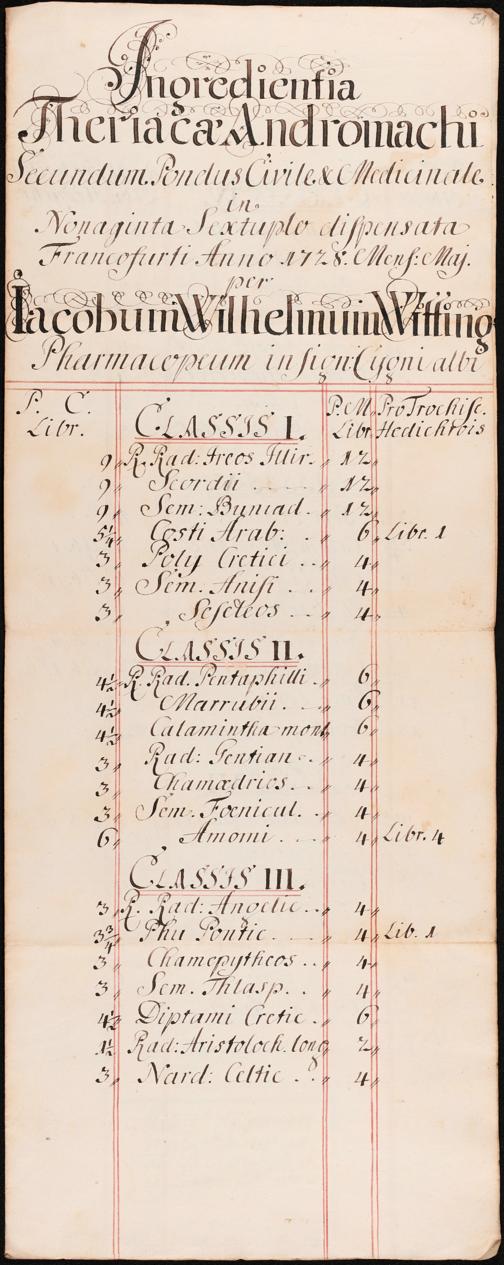 51
Ingredientia
Theriacæ Andromachi
Secundum Pondus Civile & Medicinale
in
Nonaginta Sextuplo dispensata
Francofurti Anno 1728. Mens: Maj.
per
Iacobum Wilhelmum Witting
Pharmacopœum insign: Cygni albi
P. C. Libr. CLASSIS I. P. M. Libr. Pro Trochisc. Hedichrois
9 R. Rad: Ireos Illir. 12
9 Scordii 12
9 Sem: Buniad. 12
5¼ Costi Arab: 6 Libr. 1
3 Poly Cretici 4
3 Sem. Anisi 4
3 " Seseleos 4
CLASSIS II.
4½ R. Rad. Pentaphilli 6
4½ Marrubii 6
4½ Calamintha mont 6
3 Rad: Gentian 4
3 Chamædrios 4
3 Sem. Fœnicul. 4
6 " Amomi 4 Libr. 4
CLASSIS III.
3 R. Rad: Angelic. 4
3¾ Phu Pontic 4 Lib. 1
3 Chamepytheos 4
3 Sem. Thlasp. 4
4½ Diptami Cretic 6
1½ Rad: Aristoloch. long 2
3 Nard: Celtic 4